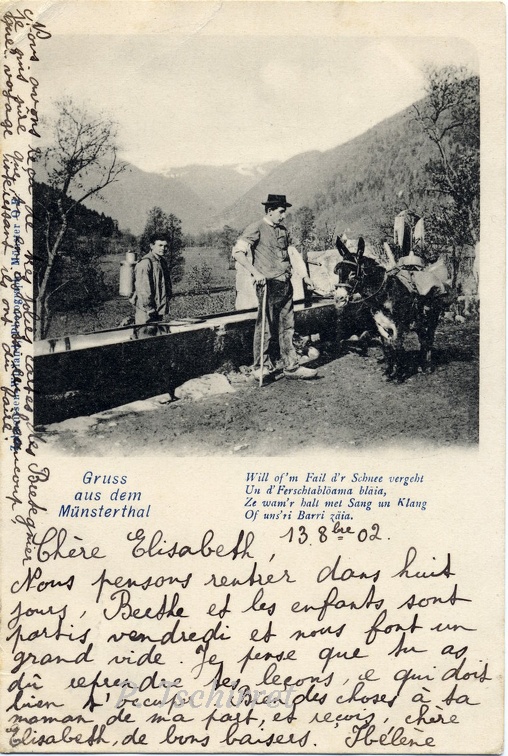 Gruss
aus dem
Münsterthal
Will of'm Fail d'r Schnee vergeht
Un d'Ferschtablöama bläia,
Ze wam'r halt met Sang un Klang
Of uns'ri Barri zäia.
Chère Elisabeth, 13 8bre 02.
Nous pensons rentrer dans huit
jours, Berthe et les enfants sont
partis vendredi et nous font un
grand vide. Je pense que tu as
dû reprendre tes leçons, ce qui doit
bien t'occuper. Bien des choses à ta
maman, de ma part, et reçois, chère
Elisabeth, de bons baisers. Hélène
Nous avons reçu de très jolies cartes des
Je suis sûre que beaucoup
que voyage intéressant ils ont dû faire.
P. Tschirret